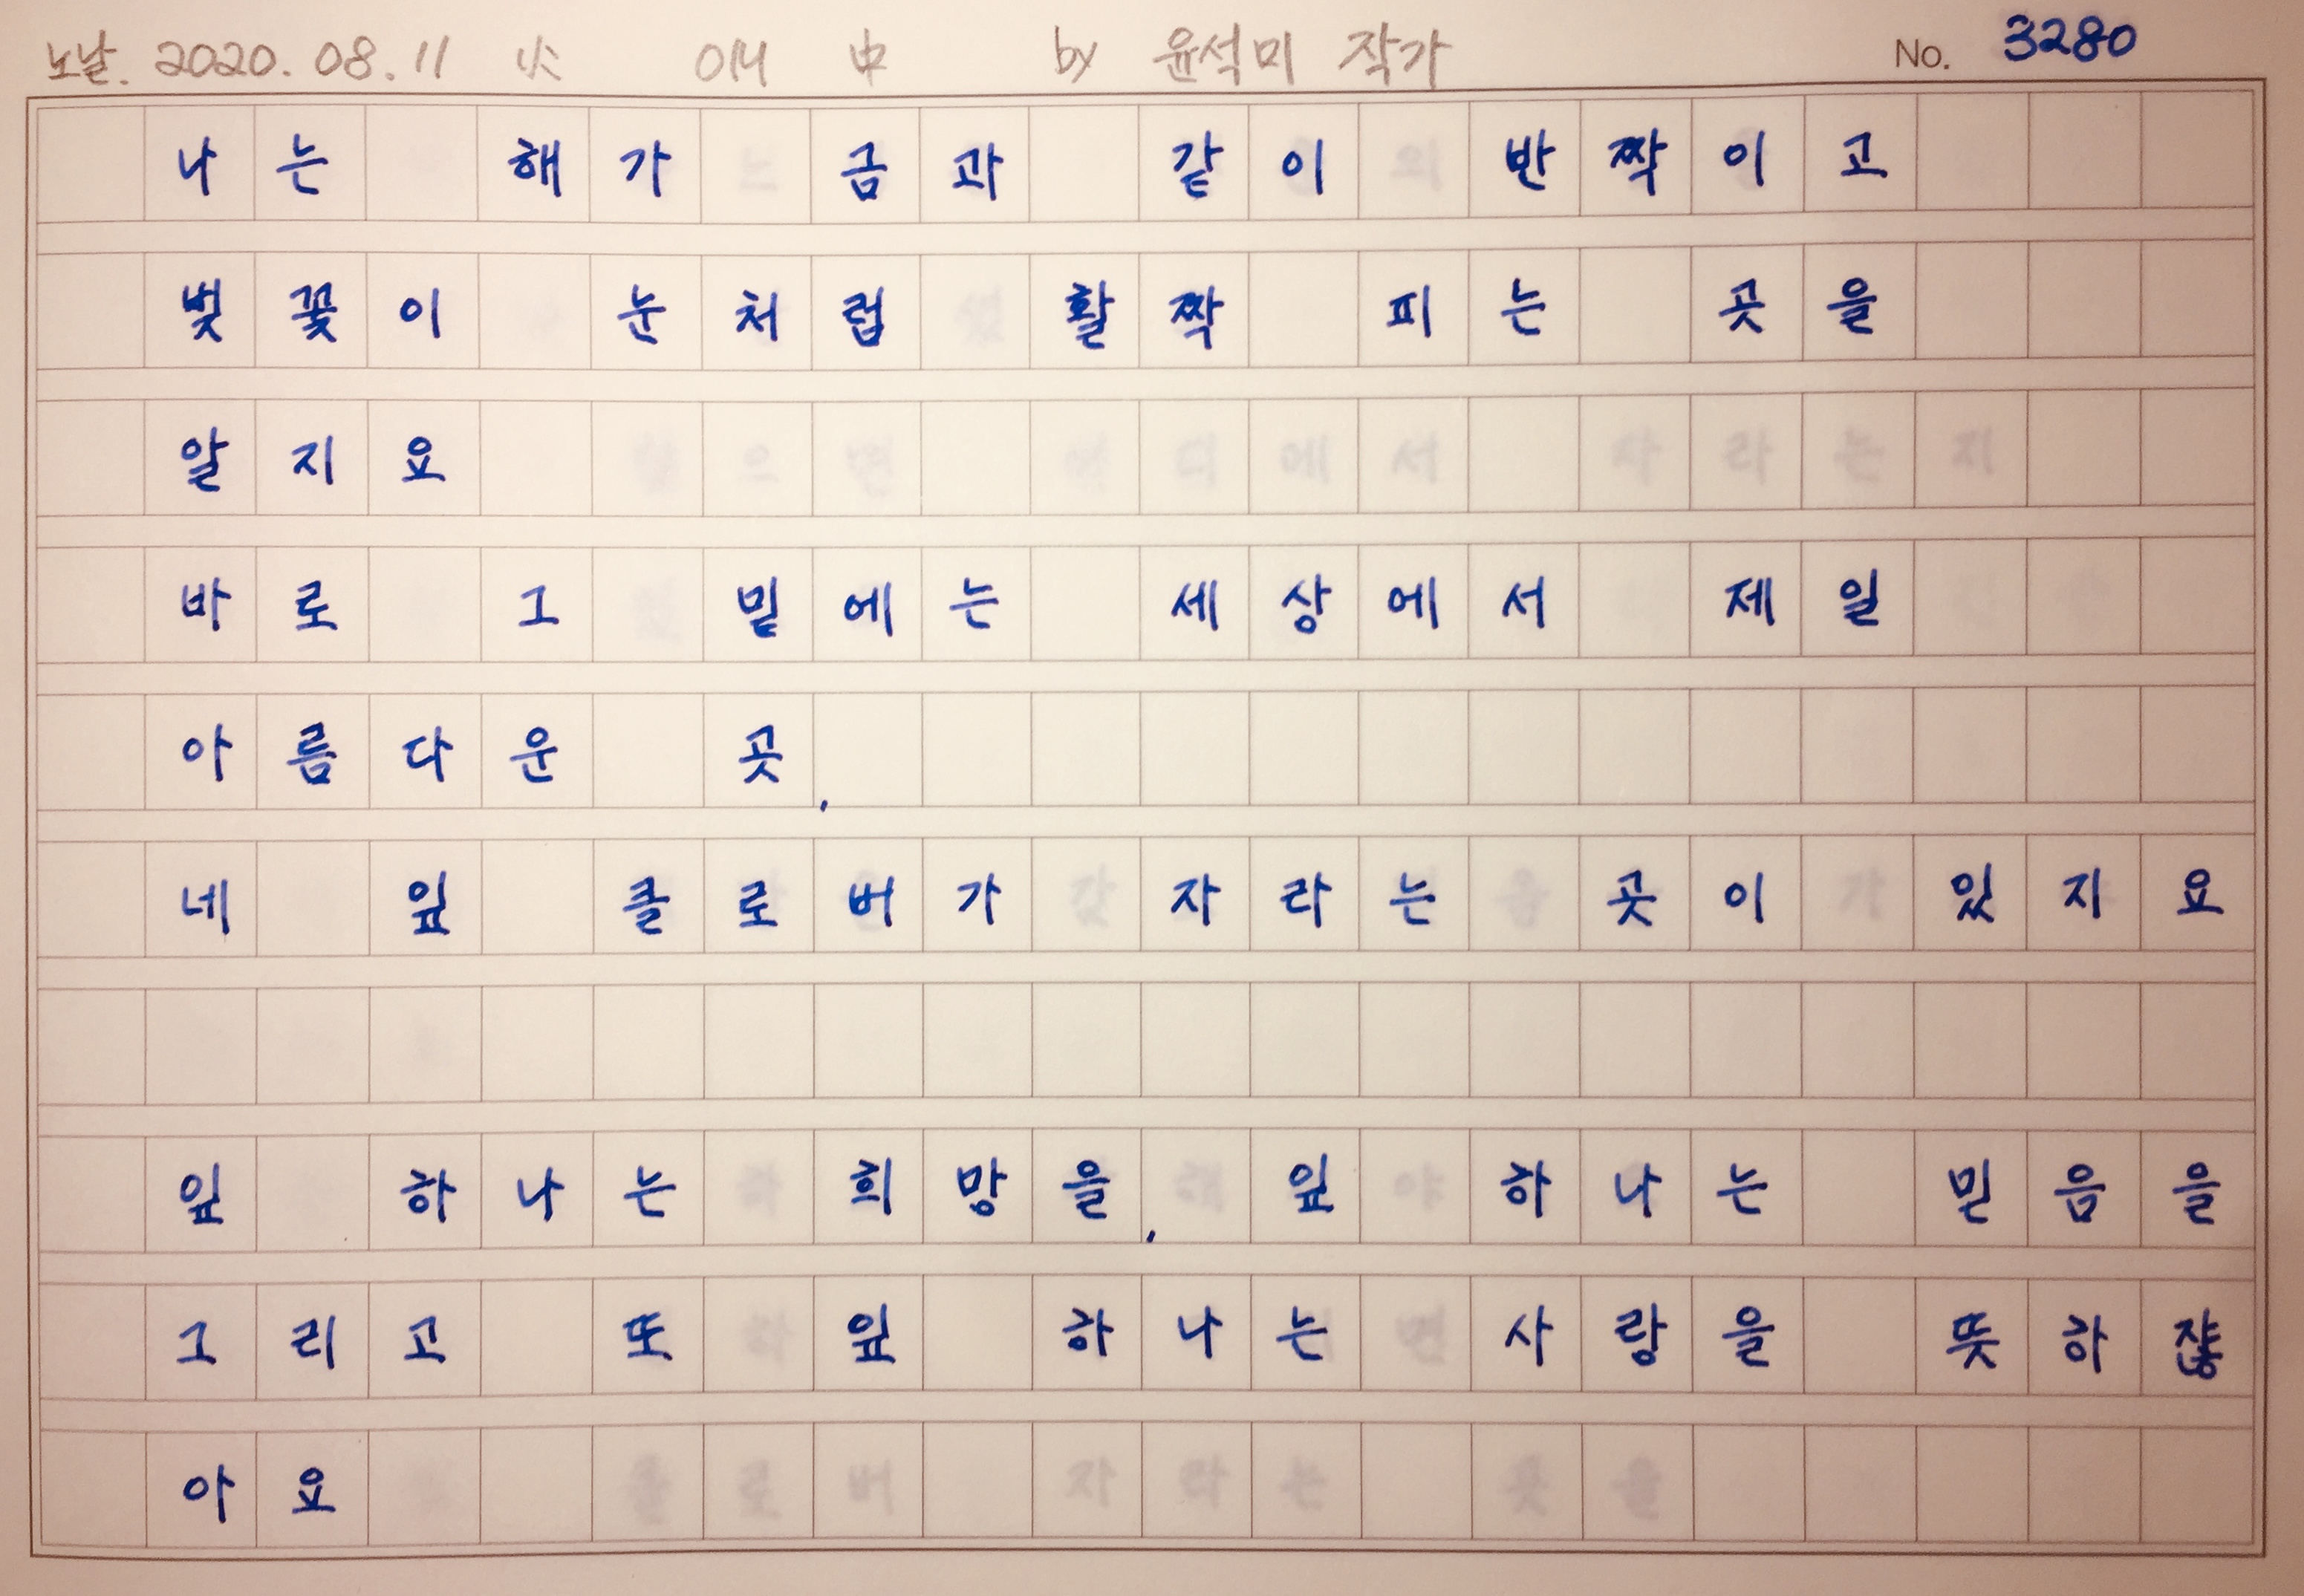 노날. 2020. 08. 11 火 애 中 by 윤석미 작가 No. 3280
나는 해가 금과 같이 반짝이고
벚꽃이 눈처럼 활짝 피는 곳을
알지요
바로 그 밑에는 세상에서 제일
아름다운 곳,
네 잎 클로버가 자라는 곳이 있지요
잎 하나는 희망을, 잎 하나는 믿음을
그리고 또 잎 하나는 사랑을 뜻하잖
아요